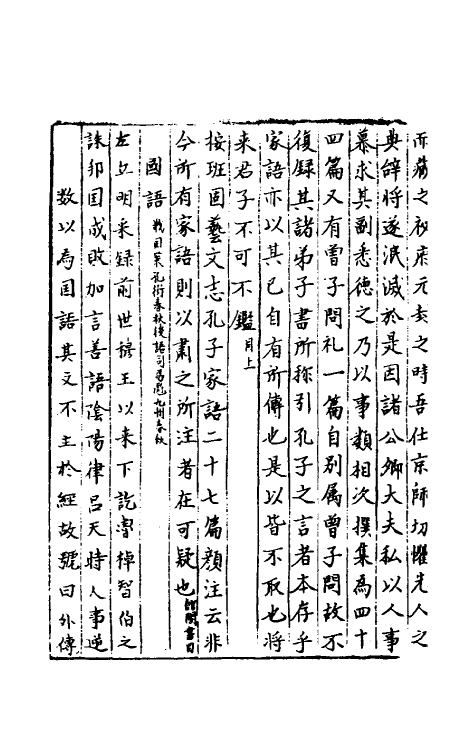 而藏之祕府元封之時吾仕京師切懼先人之
典辭將遂泯滅於是因諸公卿大夫私以人事
募求其副悉德之乃以事類相次撰集為四十
四篇又有曾子問礼一篇自别属曾子問故不
復録其諸弟子書所称引孔子之言者本存乎
家語亦以其已自有所傳也是以皆不取也將
来君子不可不鑑月上
按班固藝文志孔子家語二十七篇顔注云非
今所有家語則以肅之所注者在可疑也
國語 戦国策孔衍春秋後語司馬彪九州春秋
左丘明采録前世穆王以来下訖魯悼智伯之
誅邦国成敗加言善語陰陽律吕天時人事逆
数以為国語其文不主於經故號曰外傳